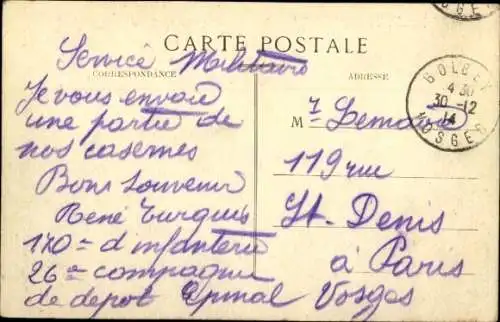 CARTE POSTALE
CORRESPONDANCE
ADRESSE
Service Militaire
Je vous envoie
une partie de
nos casernes
Bons Souvenir
René Turquis
170e d'infanterie
26e compagnie
de depot Epinal Vosges
M r Lemaire
119 rue
St. Denis
à Paris
GOLBEY
4 30
30 -12
14
VOSGES
SGE